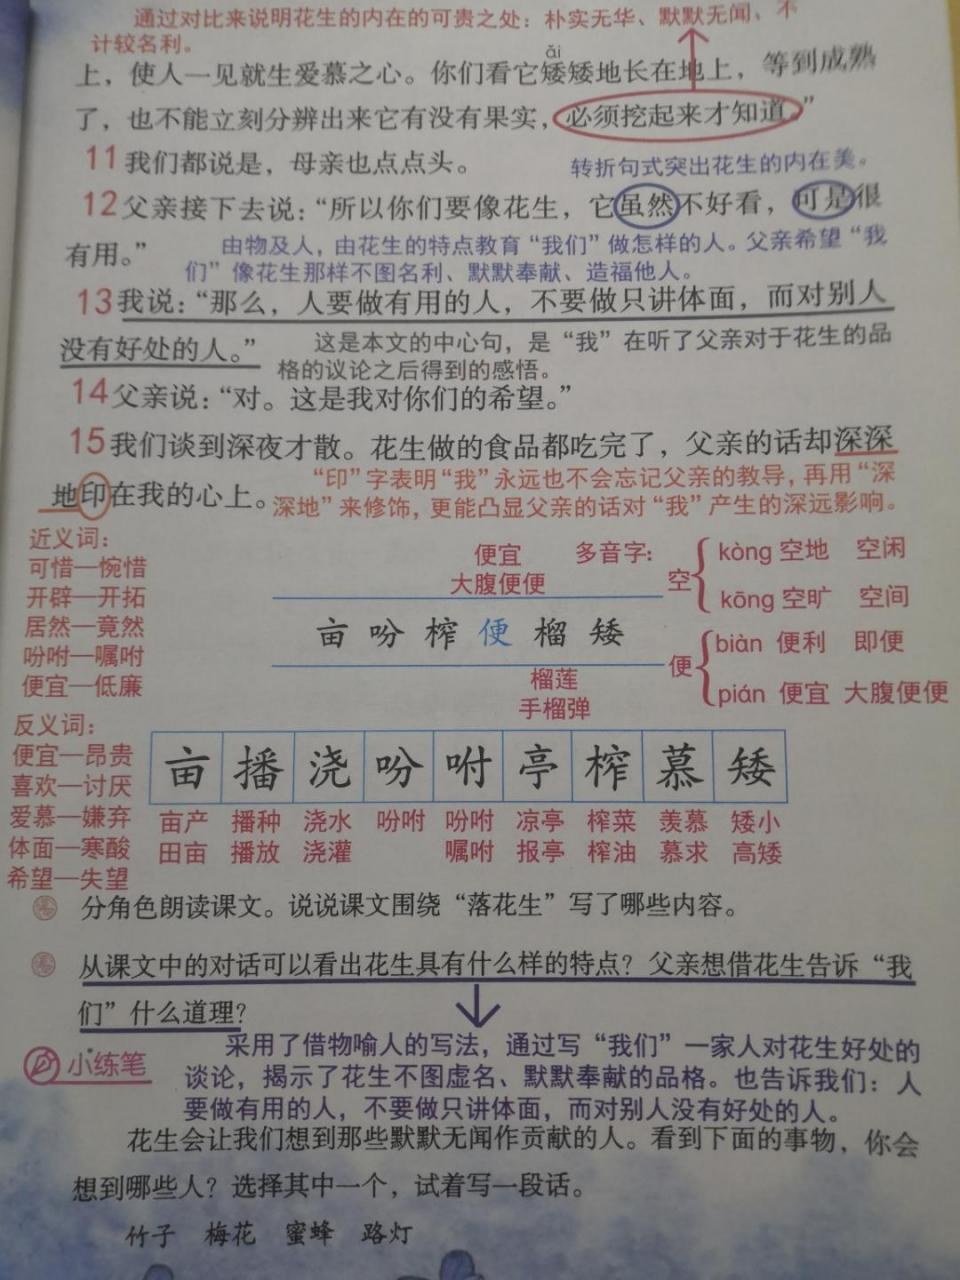 通过对比来说明花生的内在的可贵之处：朴实无华、默默无闻、不
计较名利。
ǎi
上，使人一见就生爱慕之心。你们看它矮矮地长在地上，等到成熟
了，也不能立刻分辨出来它有没有果实，必须挖起来才知道。”
11我们都说是，母亲也点点头。
转折句式突出花生的内在美。
12父亲接下去说：“所以你们要像花生，它虽然不好看，可是很
有用。”
由物及人，由花生的特点教育“我们”做怎样的人。父亲希望“我
们”像花生那样不图名利、默默奉献、造福他人。
13我说：“那么，人要做有用的人，不要做只讲体面，而对别人
没有好处的人。”
这是本文的中心句，是“我”在听了父亲对于花生的品
格的议论之后得到的感悟。
14父亲说：“对。这是我对你们的希望。”
15我们谈到深夜才散。花生做的食品都吃完了，父亲的话却深深
地印在我的心上。
“印”字表明“我”永远也不会忘记父亲的教导，再用“深
深地”来修饰，更能凸显父亲的话对“我”产生的深远影响。
近义词：
可惜—惋惜
开辟—开拓
居然—竟然
吩咐—嘱咐
便宜—低廉
便宜
大腹便便
亩 吩 榨 便 榴 矮
榴莲
手榴弹
多音字：
空
kòng 空地 空闲
kōng 空旷 空间
便
biàn 便利 即便
pián 便宜 大腹便便
反义词：
便宜—昂贵
喜欢—讨厌
爱慕—嫌弃
体面—寒酸
希望—失望
亩 播 浇 吩 咐 亭 榨 慕 矮
亩产 播种 浇水 吩咐 吩咐 凉亭 榨菜 羡慕 矮小
田亩 播放 浇灌 嘱咐 报亭 榨油 慕求 高矮
分角色朗读课文。说说课文围绕“落花生”写了哪些内容。
从课文中的对话可以看出花生具有什么样的特点？父亲想借花生告诉“我
们”什么道理？
采用了借物喻人的写法，通过写“我们”一家人对花生好处的
谈论，揭示了花生不图虚名、默默奉献的品格。也告诉我们：人
要做有用的人，不要做只讲体面，而对别人没有好处的人。
小练笔
花生会让我们想到那些默默无闻作贡献的人。看到下面的事物，你会
想到哪些人？选择其中一个，试着写一段话。
竹子 梅花 蜜蜂 路灯